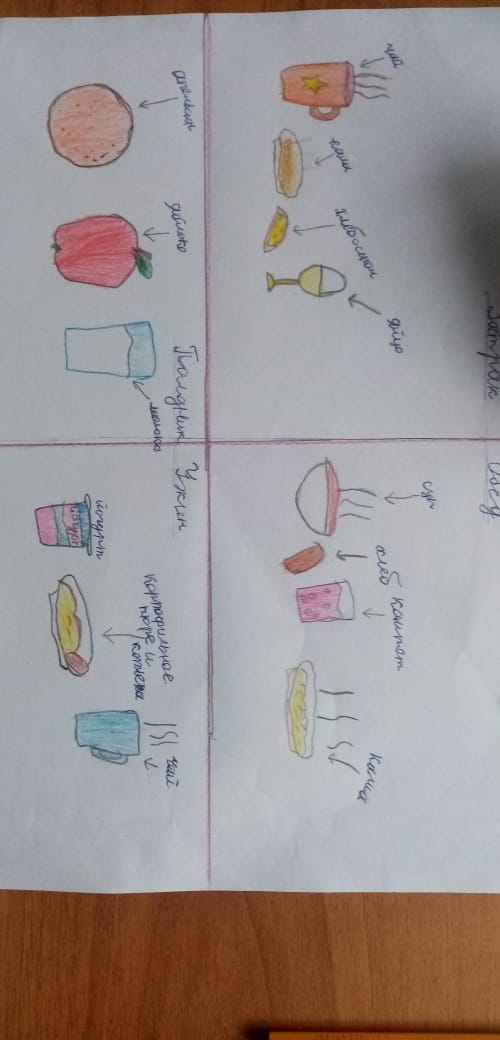 Завтрак
чай
каша
хлеб-сыром
яйцо
Обед
суп
хлеб
Кампот
Каша
Полдник
апельсин
яблоко
молоко
Ужин
йогурт
йогурт
Картофильное
пюре и
котлета
чай